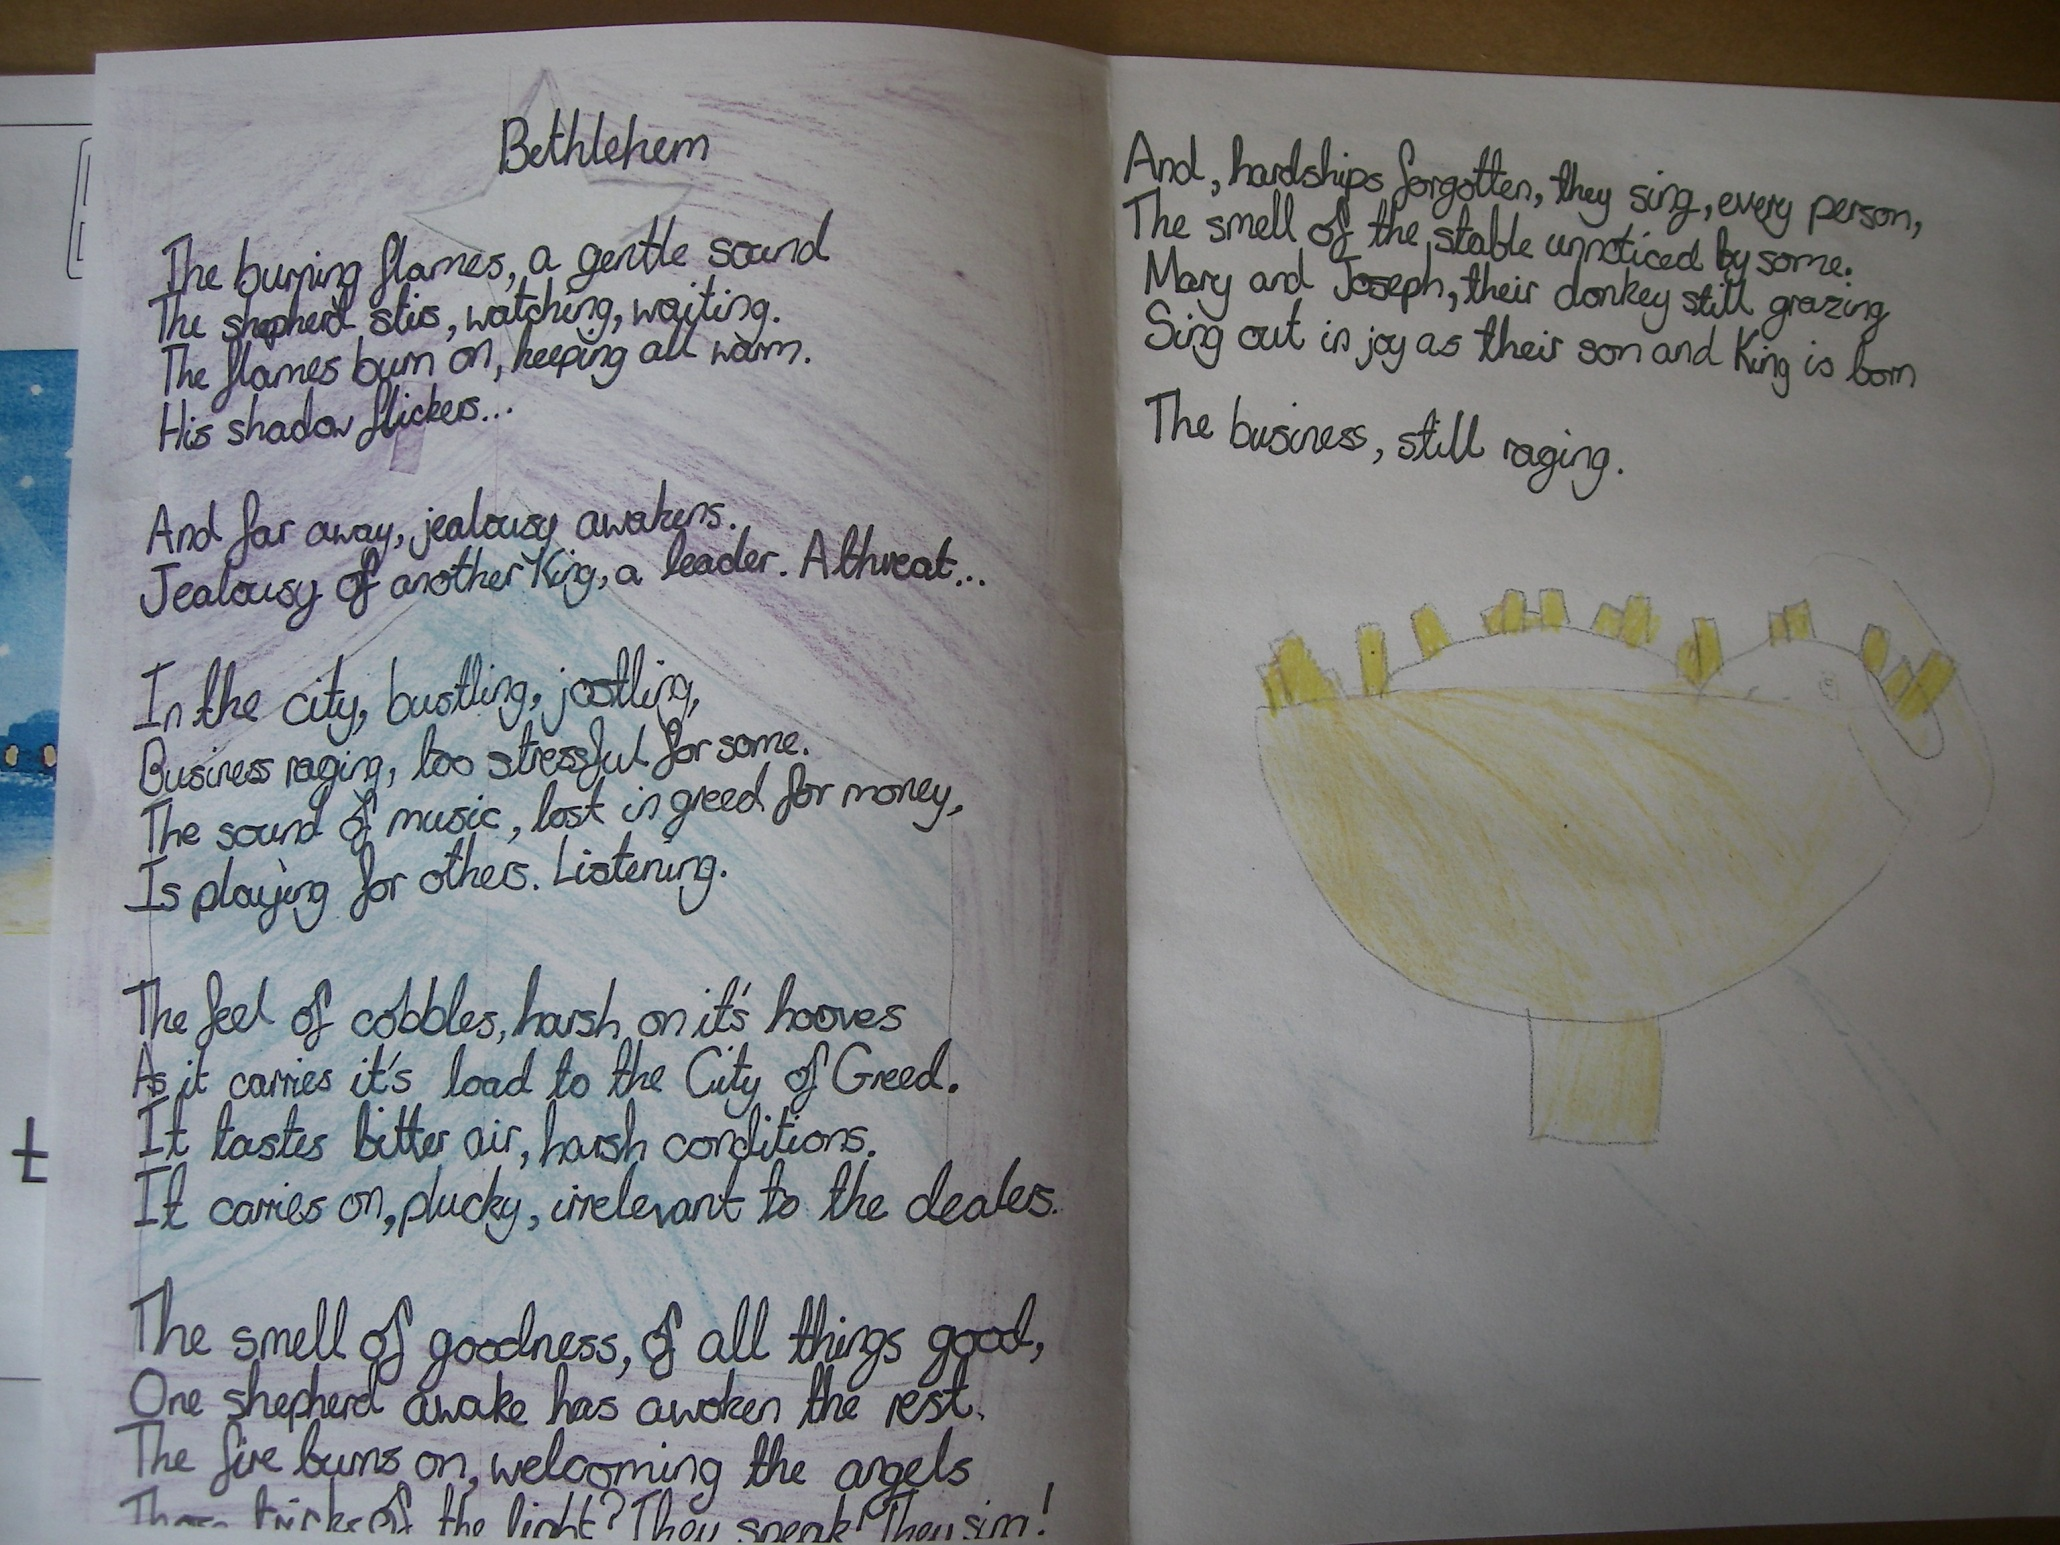 Bethlehem
The burning flames, a gentle sound
The shepherd stirs, watching, waiting.
The flames burn on, keeping all warm.
His shadow flickers...
And far away, jealousy awakens.
Jealousy of another King, a leader. A threat...
In the city, bustling, jostling,
Business raging, too stressful for some.
The sound of music, lost in greed for money,
Is playing for others. Listening.
The feel of cobbles, harsh on it's hooves
As it carries it's load to the City of Greed.
It tastes bitter air, harsh conditions.
It carries on, plucky, irrelevant to the dealers.
The smell of goodness, of all things good,
One shepherd awake has awoken the rest.
The fire burns on, welcoming the angels
These tricks of the light? They speak! They sing!
And, hardships forgotten, they sing, every person,
The smell of the stable unnoticed by some.
Mary and Joseph, their donkey still grazing
Sing out in joy as their son and King is born
The business, still raging.
t